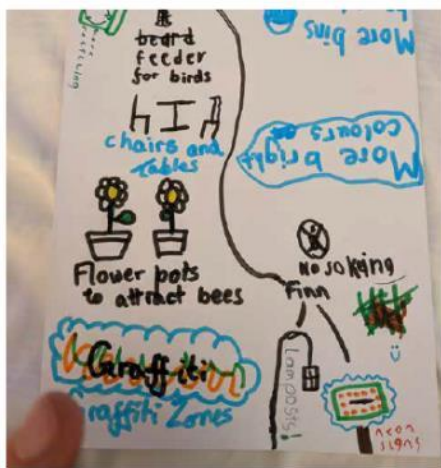 beard
feeder
for birds
chairs and
tables
Flower pots
to attract bees
Graffiti
Graffiti Zones
More bins
More bright
colours
No sokeing
Finn
Lamposts!
neon
signs